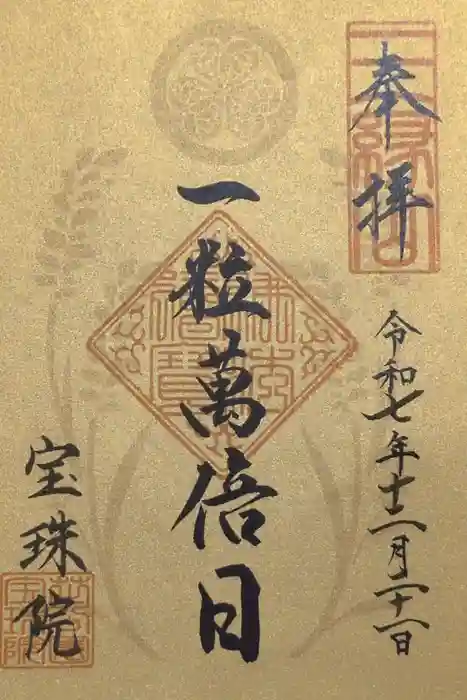 奉拝
令和七年十二月二十一日
一粒萬倍日
宝珠院